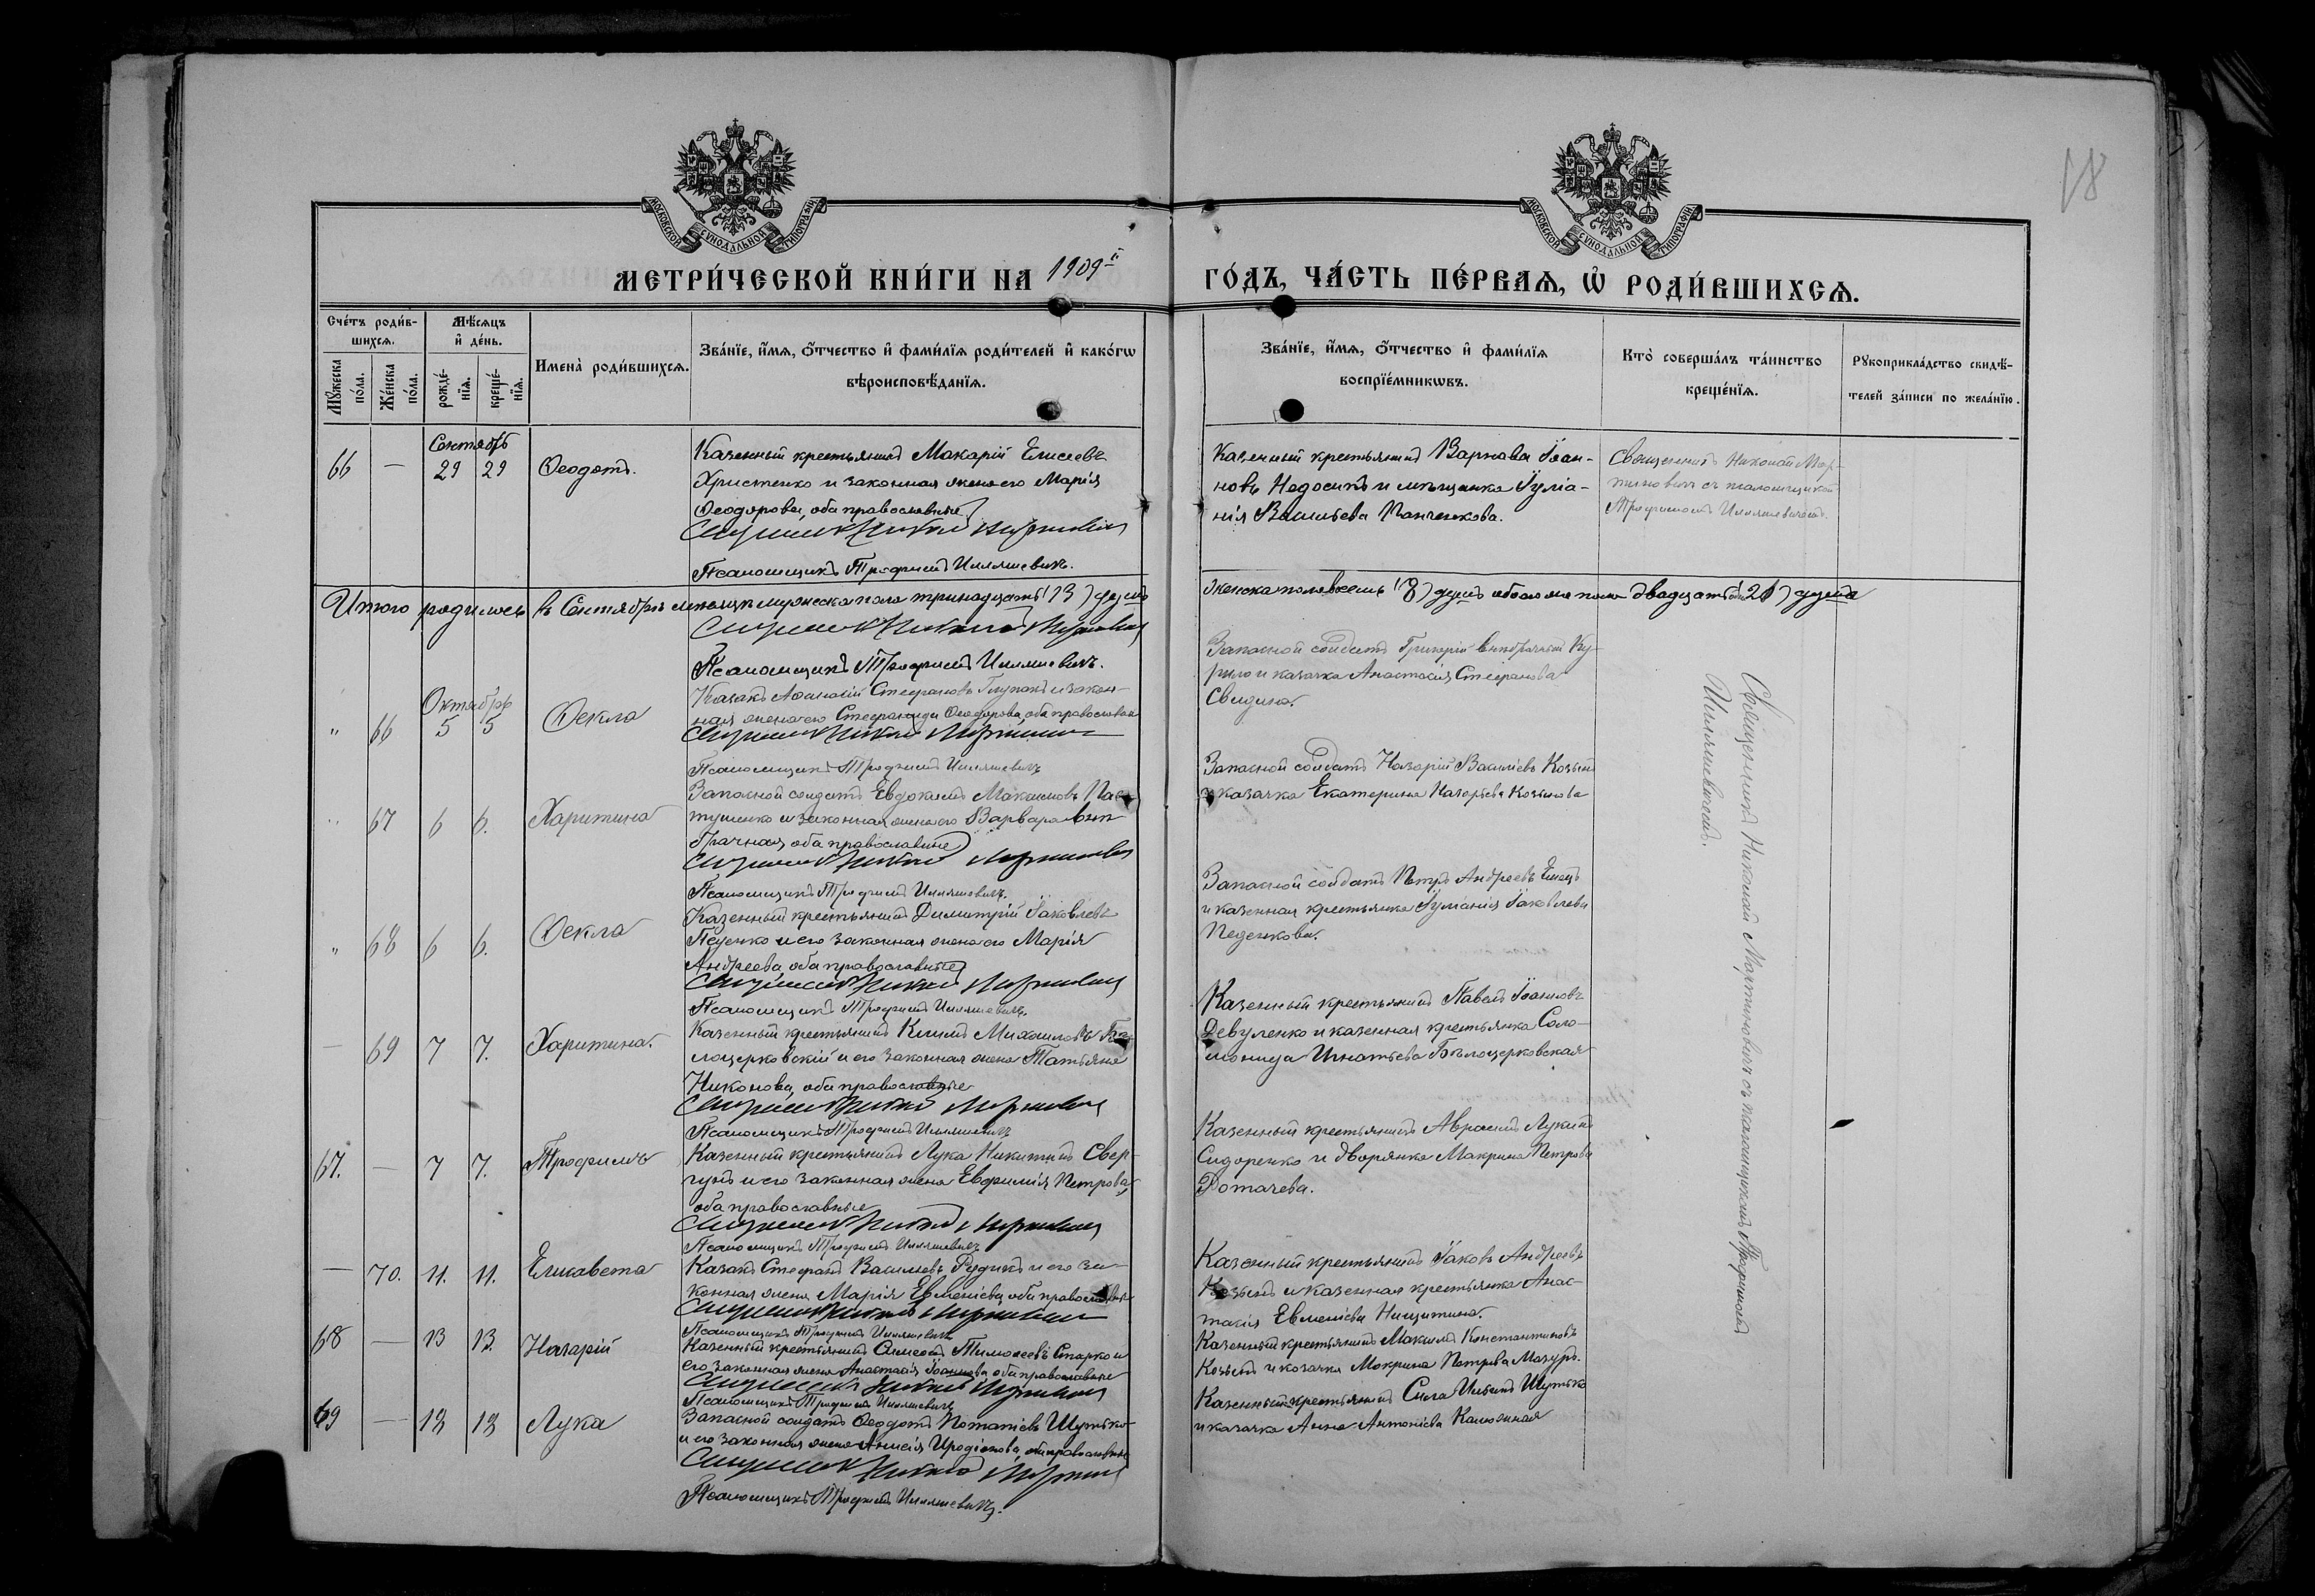 18
МОСКОВСКОЙ СУНОДАЛЬНОЙ ТИПОГРАФІИ
МОСКОВСКОЙ СУНОДАЛЬНОЙ ТИПОГРАФІИ
МЕТРИ́ЧЕСКОЙ КНИ́ГИ НА 1909й ГО́ДЪ, ЧА́СТЬ ПЕ́РВАѦ, Ѡ҆ РОДИ́ВШИХСѦ.
Сче́тъ роди́в-
шихсѧ.
Мꙋ́жеска по́ла.
Же́нска по́ла.
Мѣ́сѧцъ
и҆ де́нь.
рожде́-нїѧ.
креще́-нїѧ.
Имена̀ роди́вшихсѧ.
Зва́нїе, и҆́мѧ, ѻ҆́тчество и҆ фами́лїѧ роди́телей и҆ како́гѡ
вѣроисповѣ́данїѧ.
Зва́нїе, и҆́мѧ, ѻ҆́тчество и҆ фами́лїѧ
воспрїе́мникѡвъ.
Кто̀ соверша́лъ та́инство
креще́нїѧ.
Рꙋкоприкла́дство свидѣ́-
телей за́писи по жела́нїю.
Сентябрь
66 — 29 29 Ѳеодотъ.
Казенный крестьянинъ Макарій Елисеевъ
Христенко и законная жена его Марія
Ѳеодорова, оба православные
Священникъ Николай Мартиновичъ
Псаломщикъ Трофимъ Илляшевичъ.
Казенный крестьянинъ Варнава Іоан-
новъ Недосикъ и мѣщанка Іуліа-
нія Васильева Панченкова.
Священникъ Николай Мар-
тиновичъ съ псаломщикомъ
Трофимомъ Илляшевичемъ.
Итого родилось въ Сентябрѣ мѣсяцѣ мужеска пола тринадцать (13) душъ
женска пола восемь (8) душъ обоего пола двадцать одна (21) душа
Священникъ Николай Мартиновичъ
Псаломщикъ Трофимъ Илляшевичъ.
Октябрь
" 66 5 5 Ѳекла
Казакъ Аѳанасій Стефановъ и закон-
ная жена его Стефанида Ѳеодорова, оба православные
Священникъ Николай Мартиновичъ
Псаломщикъ Трофимъ Илляшевичъ
Запасной солдатъ Григорій внебрачный Ку-
рило и казачка Анастасія Стефанова
Свидина.
" 67 6 6. Харитина
Запасной солдатъ Евдокимъ Максимовъ Пас-
тушенко и законная жена его Варвара вне-
брачная оба православные
Священникъ Николай Мартиновичъ
Псаломщикъ Трофимъ Илляшевичъ.
Запасной солдатъ Назарій Василіевъ
и казачка Екатерина Назарьева
" 68 6 6. Ѳекла
Казенный крестьянинъ Димитрій Іаковлевъ
Педенко и его законная жена его Марія
Андреева, оба православные
Священникъ Николай Мартиновичъ
Псаломщикъ Трофимъ Илляшевичъ.
Запасной солдатъ Петръ Андреевъ Емецъ
и казенная крестьянка Іуліанія Іаковлева
Педенкова.
— 69 7 7. Харитина.
Казенный крестьянинъ Климъ Михаиловъ Бѣ-
лоцерковскій и его законная жена Татьяна
Никонова, оба православные
Священникъ Николай Мартиновичъ
Псаломщикъ Трофимъ Илляшевичъ
Казенный крестьянинъ Павелъ Іоанновъ
Девуленко и казенная крестьянка Соло-
монида Игнатьева Бѣлоцерковская
67. — 7 7. Трофимъ
Казенный крестьянинъ Лука Никитинъ Свер-
гунъ и его законная жена Евфимія Петрова,
оба православные
Священникъ Николай Мартиновичъ
Псаломщикъ Трофимъ Илляшевичъ
Казенный крестьянинъ Аврамъ Лукинъ
Сидоренко и дворянка Макрина Петрова
Потачева.
— 70. 11. 11. Елисавета
Казакъ Стефанъ Васильевъ Рудикъ и его за-
конная жена Марія Евменіева, оба православные
Священникъ Николай Мартиновичъ
Псаломщикъ Трофимъ Илляшевичъ
Казенный крестьянинъ Іаковъ Андреевъ
и казенная крестьянка Анас-
тасія Евменіева Нищитина.
68 — 13 13. Назарій
Казенный крестьянинъ Симеонъ Тимоѳеевъ и
его законная жена Анастасія Іоаннова оба православные
Священникъ Николай Мартиновичъ
Псаломщикъ Трофимъ Илляшевичъ
Казенный крестьянинъ Максимъ Константиновъ
и козачка Мокрина Петрова Мазуръ.
69 — 13 13 Лука
Запасной солдатъ Ѳеодотъ Потапіевъ Шутько
и его законная жена Анисія Иродіонова, оба православные
Священникъ Николай Мартиновичъ
Псаломщикъ Трофимъ Илляшевичъ.
Казенный крестьянинъ Сила Шутько
и казачка Анна Антоніева Калюжная
Священникъ Николай Мартиновичъ съ псаломщикомъ Трофимомъ
Илляшевичемъ.